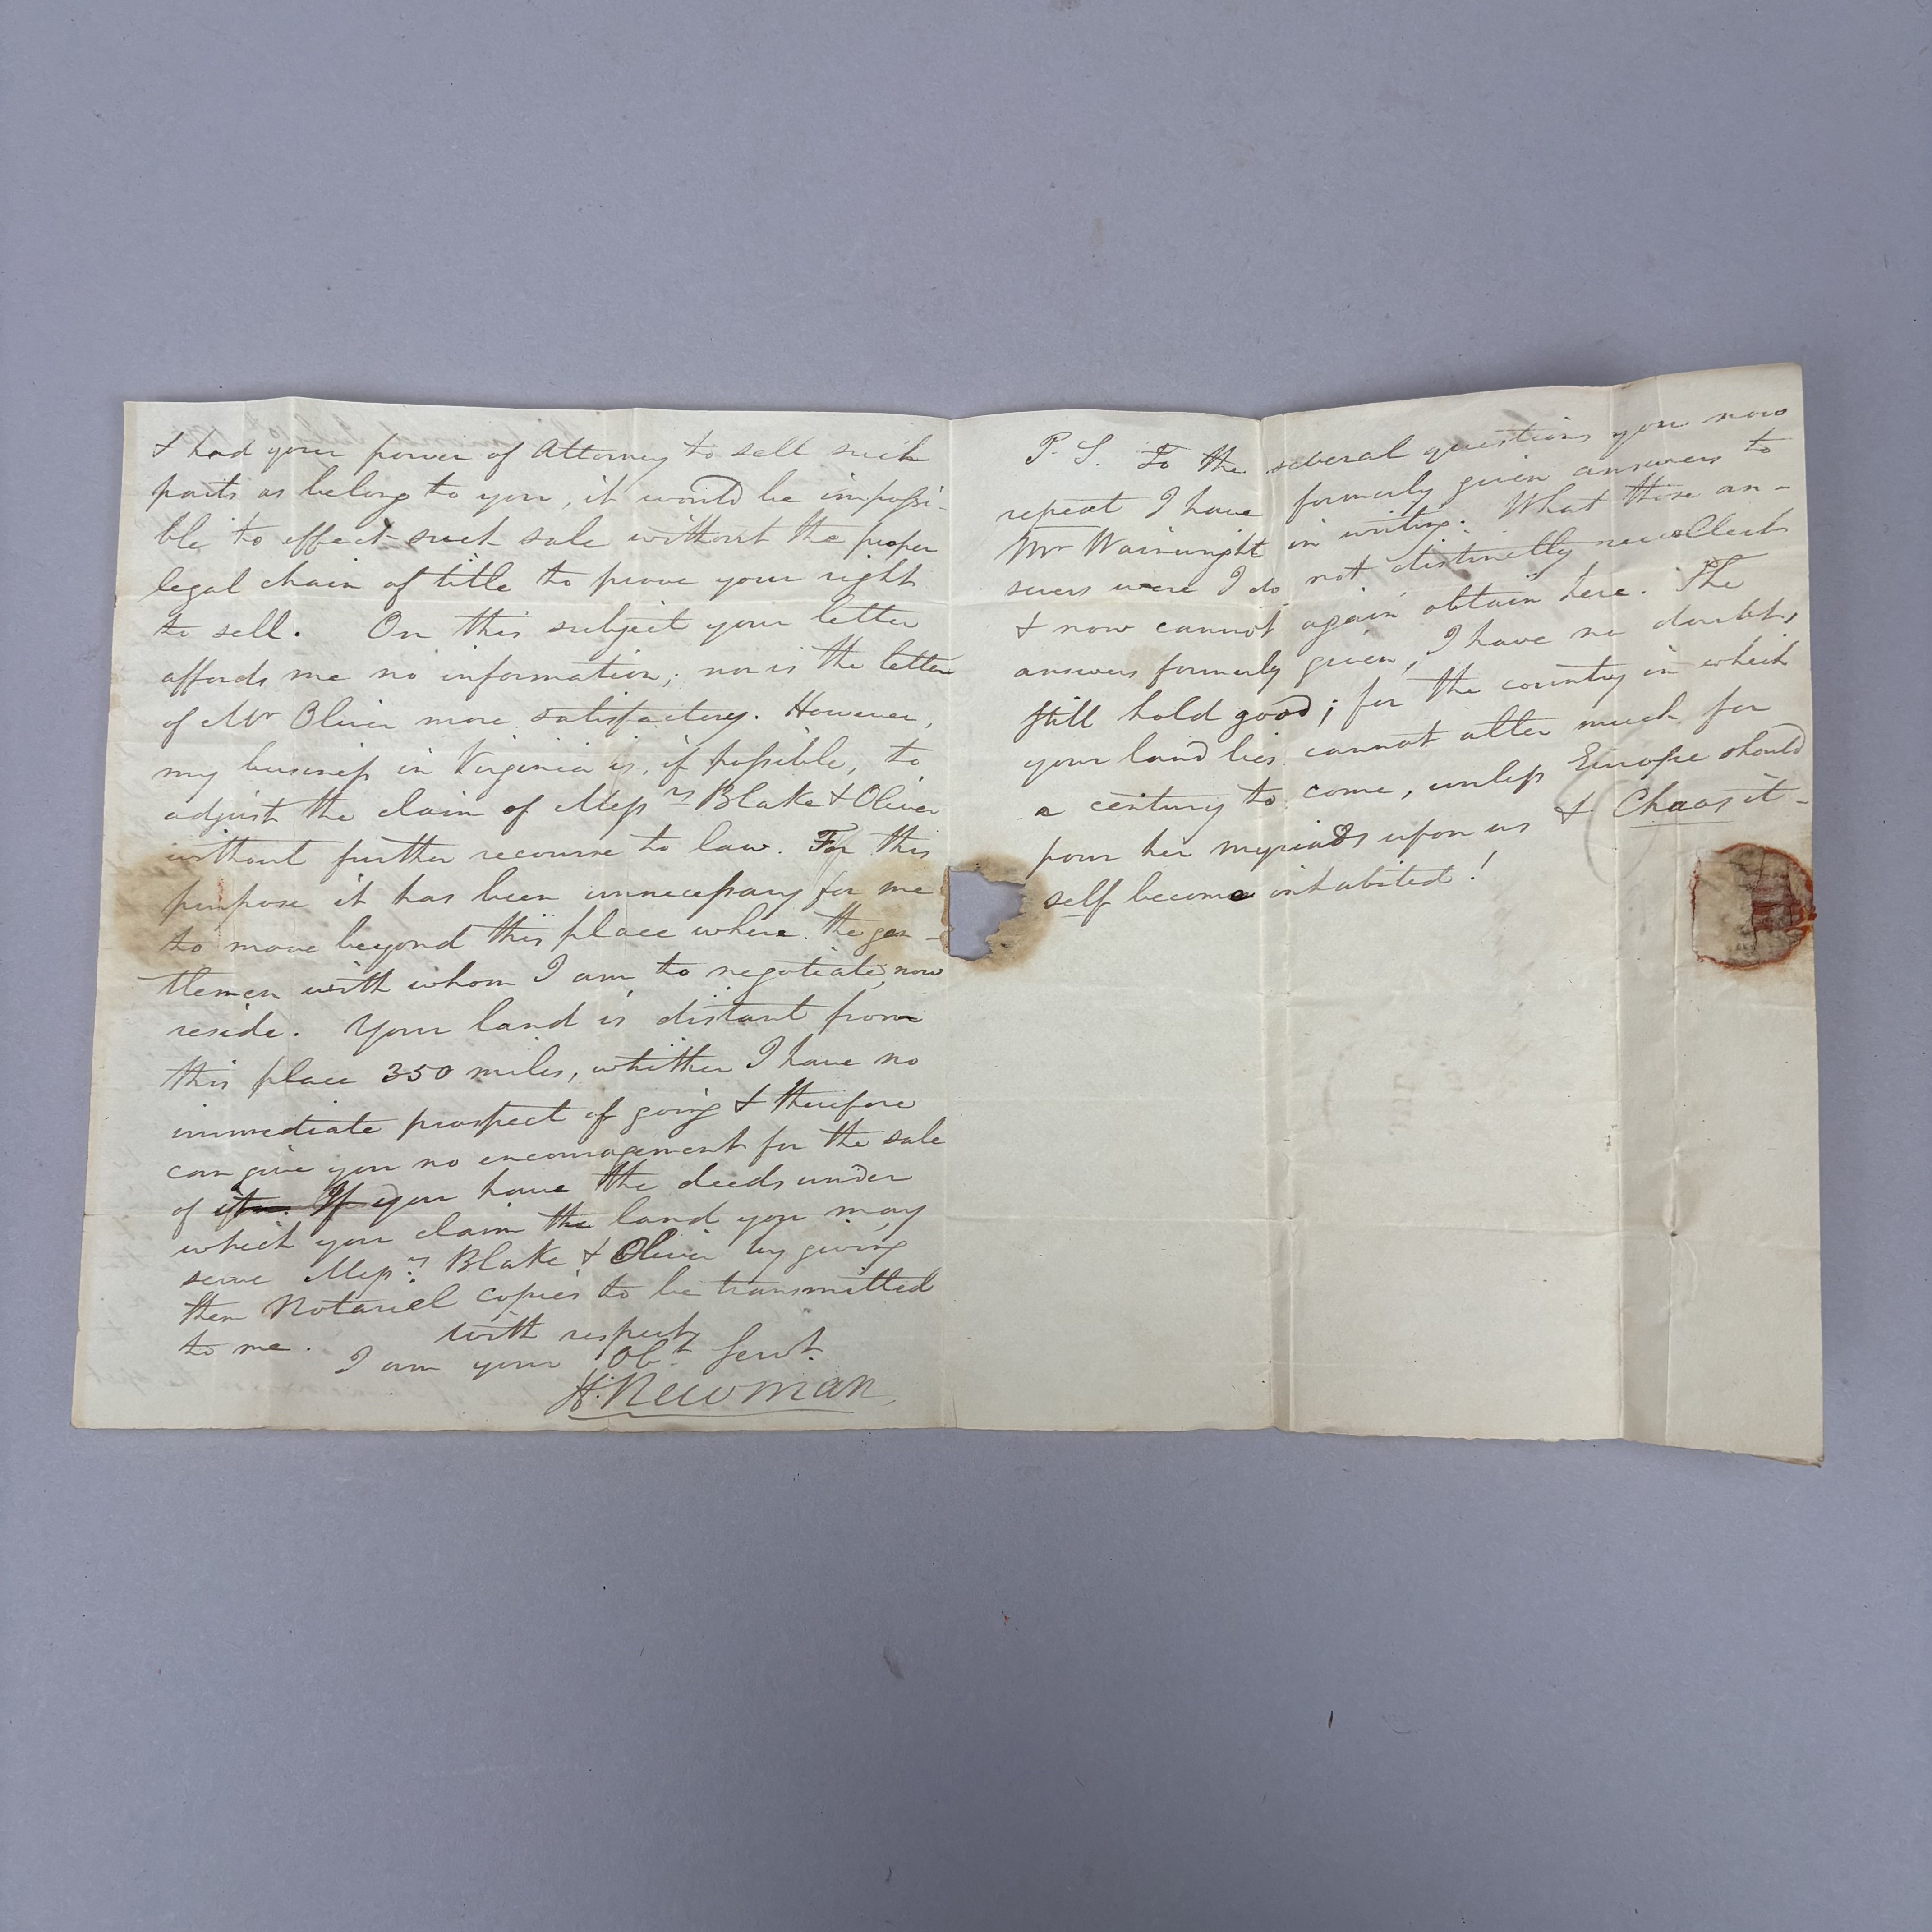 & had your power of Attorney to sell such
parts as belong to you, it would be impossi-
ble to effect such sale without the proper
legal chain of title to prove your right
to sell. On this subject your letter
affords me no information; nor is the letter
of Mr Oliver more satisfactory. However,
my business in Virginia is, if possible, to
adjust the claim of Messrs Blake & Oliver
without further recourse to law. For this
purpose it has been unnecessary for me
to move beyond this place where the gen-
tlemen with whom I am to negotiate, now
reside. Your land is distant from
this place 350 miles, whither I have no
immediate prospect of going & therefore
can give you no encouragement for the sale
of it. If you have the deeds under
which you claim the land you may
serve Messrs Blake & Oliver by giving
them Notariel copies to be transmitted
to me. with respect
I am your Obt Servt.
H. Newman
P. S. To the several questions you now
repeat I have formerly given answers to
Mr Wainwright in writing. What those an-
swers were I do not distinctly recollect
& now cannot again obtain here. The
answers formerly given, I have no doubt,
still hold good; for the country in which
your land lies cannot alter much for
a century to come, unless Europe should
pour her myriads upon us & Chaos it-
self become inhabited!